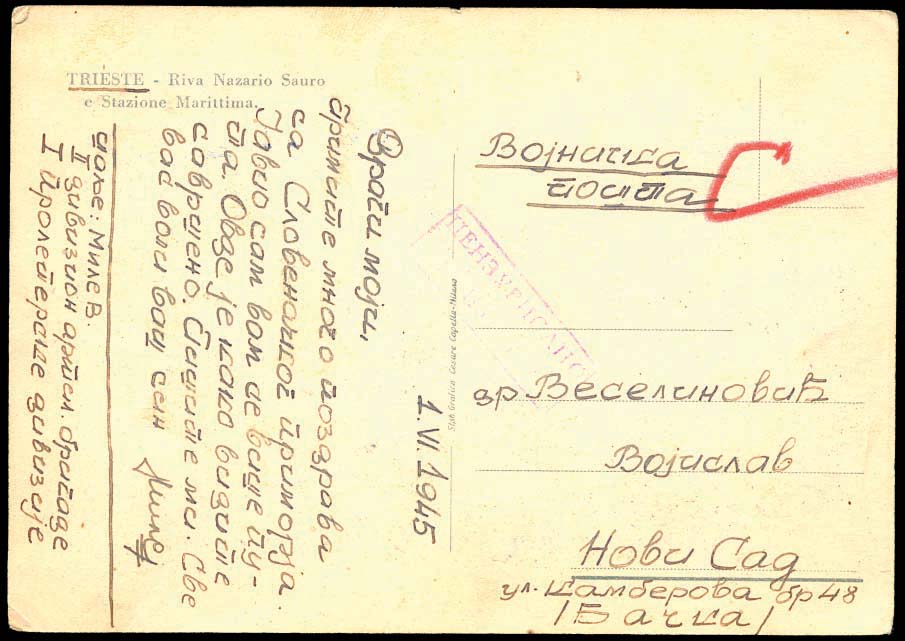 TRIESTE - Riva Nazario Sauro
e Stazione Marittima.
1. VI. 1945
Драги моји,
Примите много поздрава
са Словеначког приморја.
Јавио сам вам се више пу-
та. Овде је како видите
савршено. Пишите ми. Све
вас воли ваш син
Миле
шаље: Миле В.
II дивизион артил. бригаде
I Пролетерске дивизије
Stab Grafico Cesare Capello - Milano
ЦЕНЗУРИСАНО
Војничка
пошта
др Веселиновић
Војислав
Нови Сад
ул. Камберова бр 48
/Бачка/